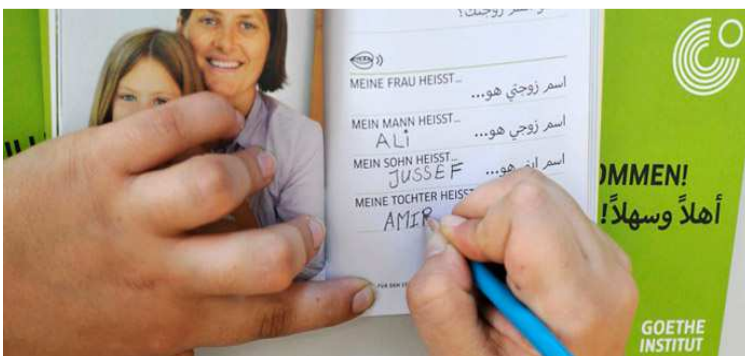 MEINE FRAU HEISST...
اسم زوجتي هو...
MEIN MANN HEISST...
اسم زوجي هو...
ALi
MEIN SOHN HEISST...
اسم ابني هو...
JUSSEF
MEINE TOCHTER HEISST
AMIR
OMMEN!
أهلاً وسهلاً!
GOETHE
INSTITUT